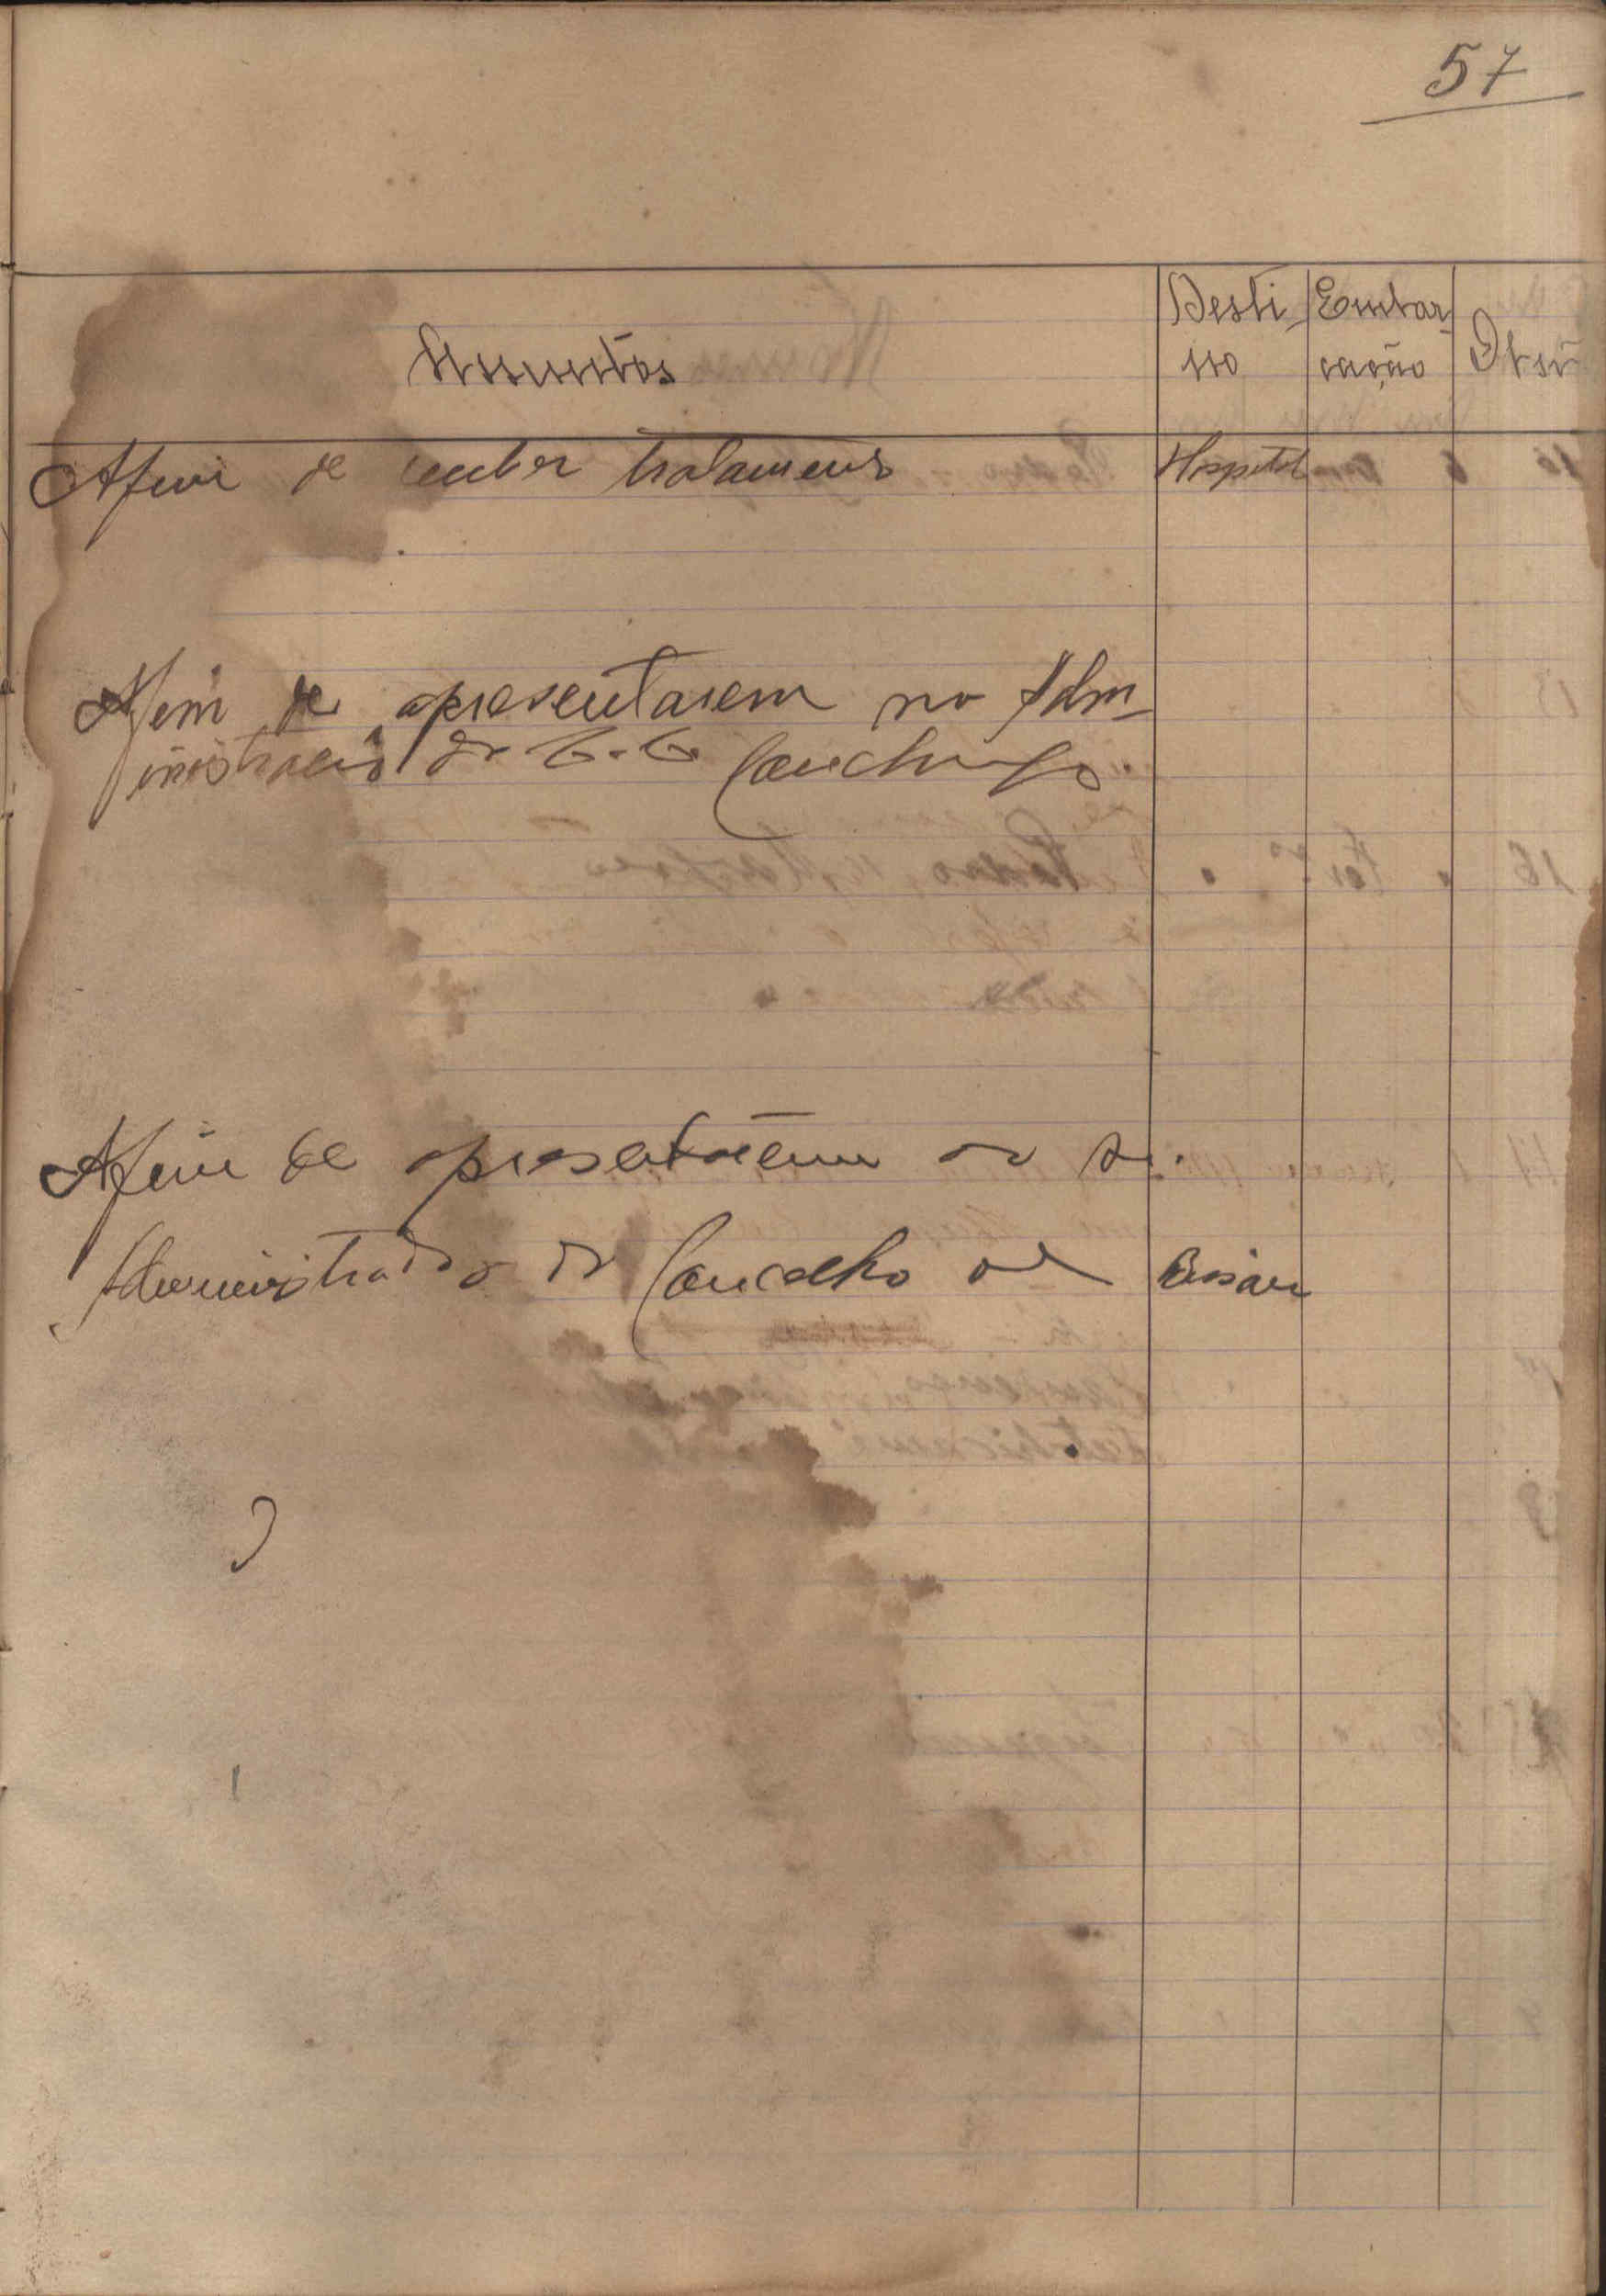 57
Assuntos
Desti
no
Embar
cação
Obsr
Afim de receber tratamento
Hospital
Afim de apresentarem no Adm
inistracão do C. C. Canchungo.
Afim de apresentarem ao Sr.
Administrador do Concelho de Bissau